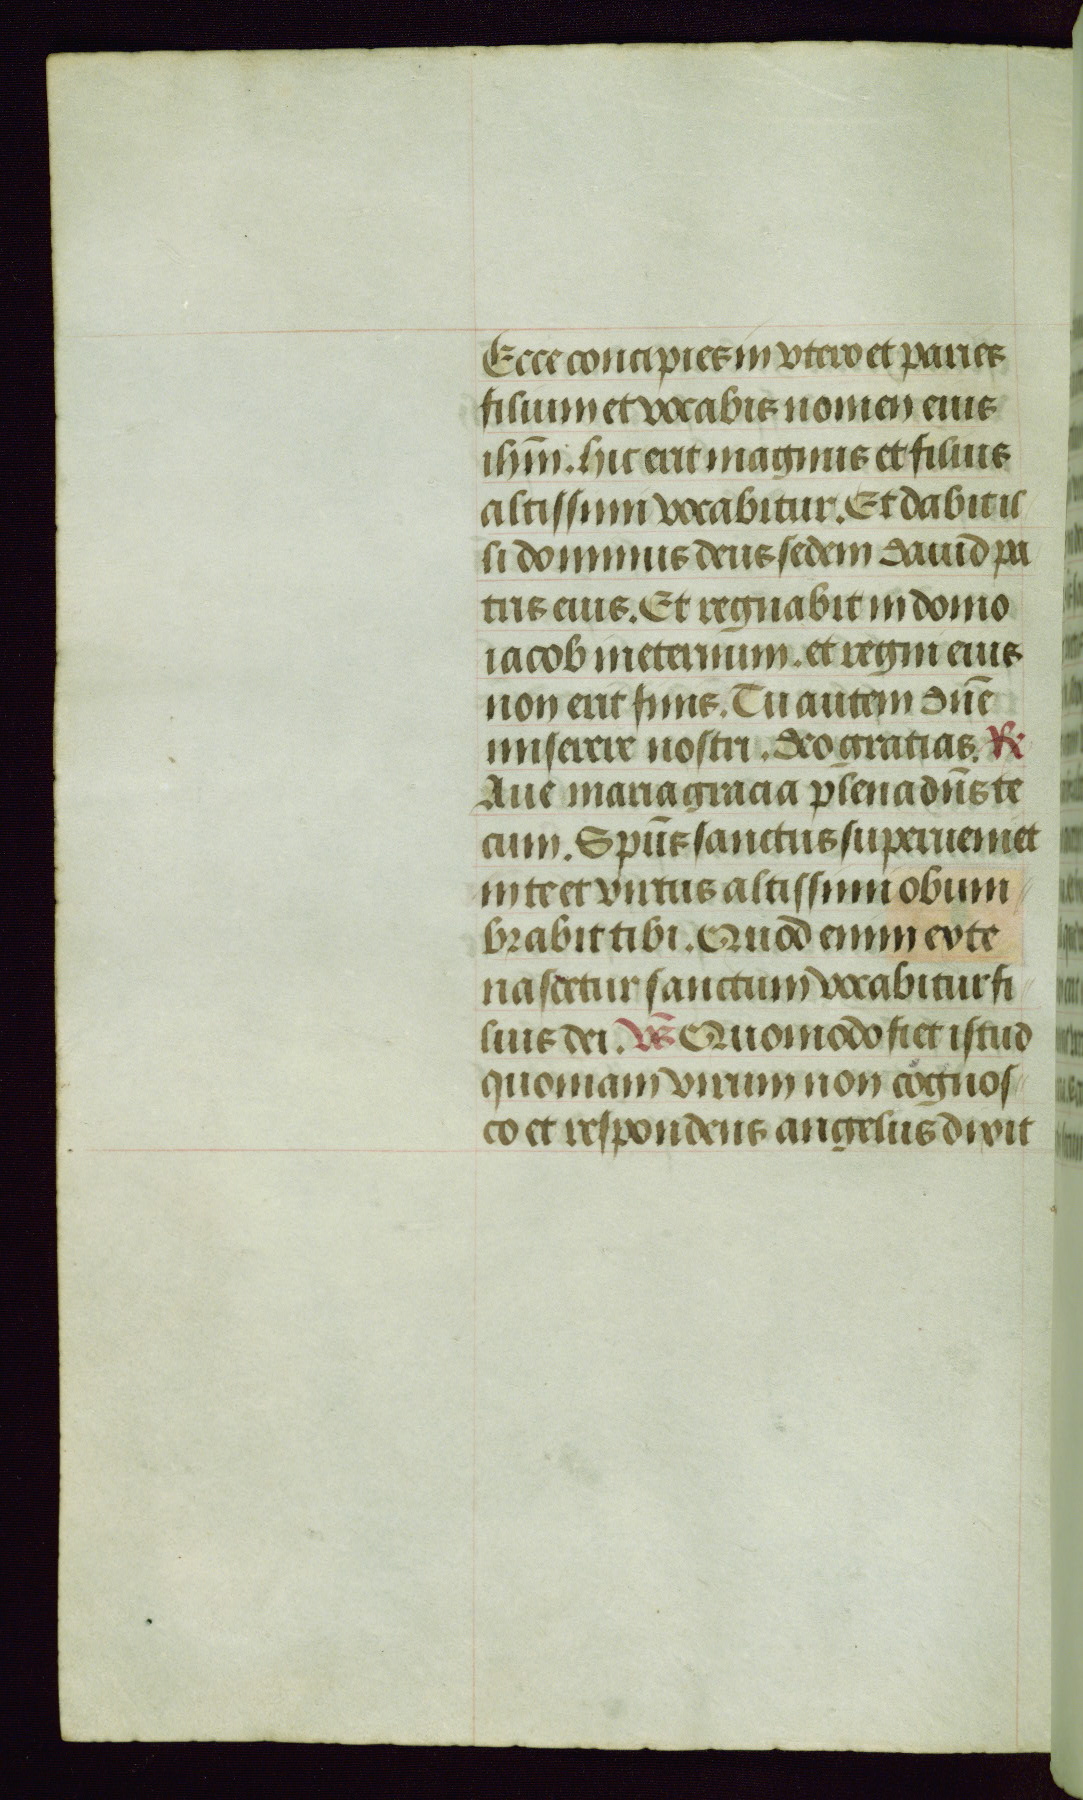 Ecce concipies in vtero et paries
filium et vocabis nomen eius
ihm̄. hic erit magnus et filius
altissimi vocabitur. Et dabit il
li dominus deus sedem dauid pa
tris eius. Et regnabit in domo
iacob in eternum. et regni eius
non erit finis. Tu autem dn̄e
miserere nostri. deo gratias. R̸
Aue maria gracia plena dn̄s te
cum. Spūs sanctus superueniet
in te et virtus altissimi obum
brabit tibi. Quod enim ex te
nascetur sanctum vocabitur fi
lius dei. v̄s Quomodo fiet istud
quoniam virum non cognos
co et respondens angelus dixit